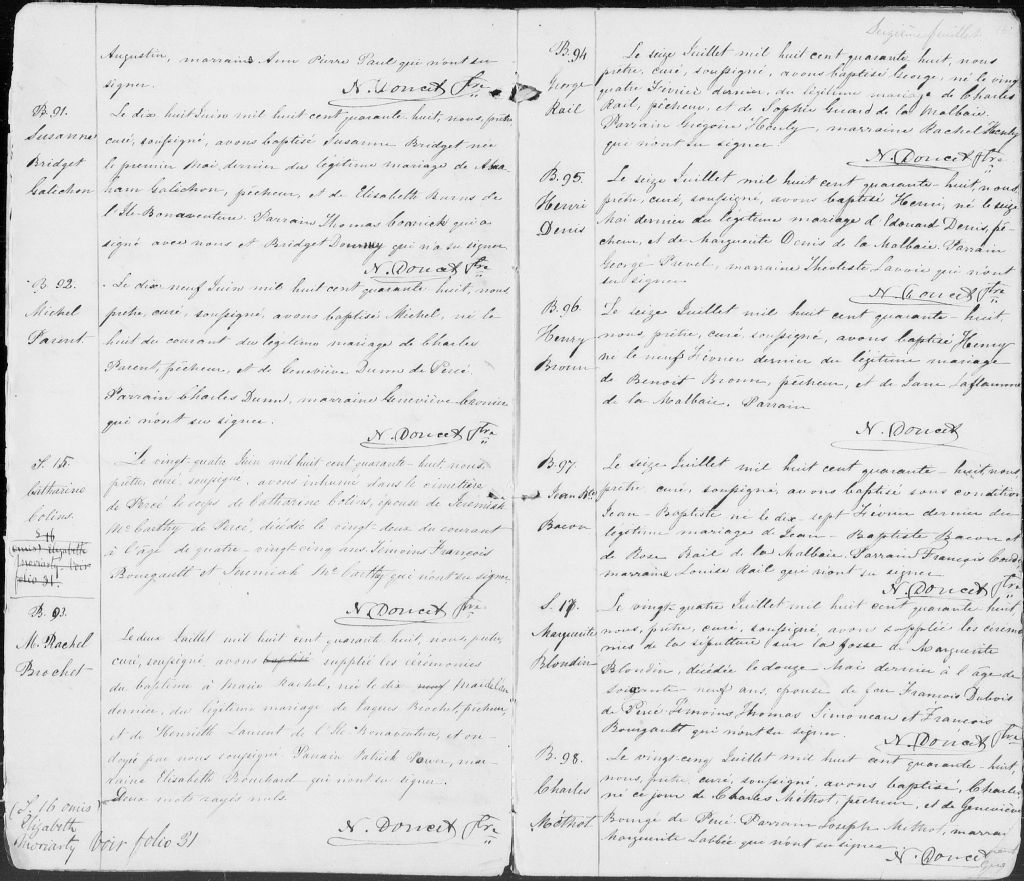 Augustin, marraine Ann Pierre Paul qui n'ont su
signer.
N. Doucet Ptre
B. 91.
Susanne
Bridget
Galichon
Le dix huit Juin mil huit cent quarante huit, nous, prêtre
curé, soussigné, avons baptisé Susanne Bridget née
le premier Mai dernier du légitime mariage de Abra-
ham Galichon, pêcheur, et de Elisabeth Burns de
l'Ile Bonaventure. Parrain Thomas qui a
signé avec nous et Bridget qui n'a su signer
N. Doucet Ptre
B. 92.
Michel
Parent.
Le dix neuf Juin mil huit cent quarante huit, nous,
prêtre, curé, soussigné, avons baptisé Michel, né le
huit du courant du légitime mariage de Charles
Parent, pêcheur, et de Geneviève Dunn de Percé.
Parrain Charles Dunn, marraine Geneviève Cronier
qui n'ont su signer.
N. Doucet Ptre
S. 15.
Catharine
Colins.
S 16
omis Elizabeth
Moriarty. Voir
folio 31.
Le vingt-quatre Juin mil huit cent quarante-huit, nous,
prêtre, curé, soussigné, avons inhumé dans le cimetière
de Percé le corps de Catharine Colins, épouse de Jeremiah
McCarthy de Percé, décédée le vingt-deux du courant
à l'âge de quatre-vingt cinq ans. Témoins François
Bourgault et Jeremiah McCarthy qui n'ont su signer
N. Doucet Ptre
B. 93.
M. Rachel
Brochet
Le deux Juillet mil huit cent quarante huit, nous, prêtre,
curé, soussigné, avons baptisé suppléé les cérémonies
du baptême à Marie Rachel, née le dix neuf Mai de l'an
dernier, du légitime mariage de Jaques Brochet, pêcheur,
et de Henriette Laurent de l'Ile Bonaventure, et on-
doyée par nous soussigné Parrain Patrick Power, mar-
raine Elisabeth Bouchard qui n'ont su signer.
Deux mots rayés nuls.
N. Doucet Ptre
(S. 16 omis
Elizabeth
Moriarty Voir folio 31
Seizième feuillet
B. 94
George
Rail
Le seize Juillet mil huit cent quarante huit, nous
prêtre, curé, soussigné, avons baptisé George, né le vingt
quatre Février dernier, du légitime mariage de Charles
Rail, pêcheur, et de Sophie Guard de la Malbaie.
Parrain Gregoire Henly, marraine Rachel Henly
qui n'ont su signer.
N. Doucet Ptre
B. 95.
Henri
Denis
Le seize Juillet mil huit cent quarante-huit, nous
prêtre, curé, soussigné, avons baptisé Henri, né le seize
Mai dernier du légitime mariage d'Edouard Denis, pê-
cheur, et de Marguerite Denis de la Malbaie. Parrain
George Prevel, marraine Theotiste Lavoie qui n'ont
su signer.
N. Doucet Ptre
B. 96.
Henry
Broun
Le seize Juillet mil huit cent quarante-huit,
nous, prêtre, curé, soussigné, avons baptisé Henry
né le neuf Février dernier du légitime mariage
de Benoit Broun, pêcheur, et de Jane Laflamme
de la Malbaie. Parrain
N. Doucet
B. 97.
Jean Bte
Bacon
Le seize Juillet mil huit cent quarante-huit, nous
prêtre, curé, soussigné, avons baptisé sous condition
Jean-Baptiste né le dix-sept Février dernier du
légitime mariage de Jean-Baptiste Bacon et
de Rose Rail de la Malbaie. Parrain François
marraine Louise Rail qui n'ont su signer
N. Doucet Ptre
S. 17.
Marguerite
Blondin
Le vingt-quatre Juillet mil huit cent quarante huit
nous, prêtre, curé, soussigné, avons suppléé les cérémo-
nies de la sépulture sur la fosse de Marguerite
Blondin, décédée le douze Mai dernier à l'âge de
soixante-neuf ans, épouse de feu François Dubois
de Percé Témoins Thomas Simoneau et François
Bourgault qui n'ont su signer.
N. Doucet Ptre
B. 98.
Charles
Méthot
Le vingt-cinq Juillet mil huit cent quarante-huit,
nous, prêtre, curé, soussigné, avons baptisé, Charles
né ce jour de Charles Méthot, pêcheur, et de Geneviève
Bourgé de Percé Parrain Joseph Méthot, marrai
Marguerite Labbée qui n'ont su signer
N. Doucet